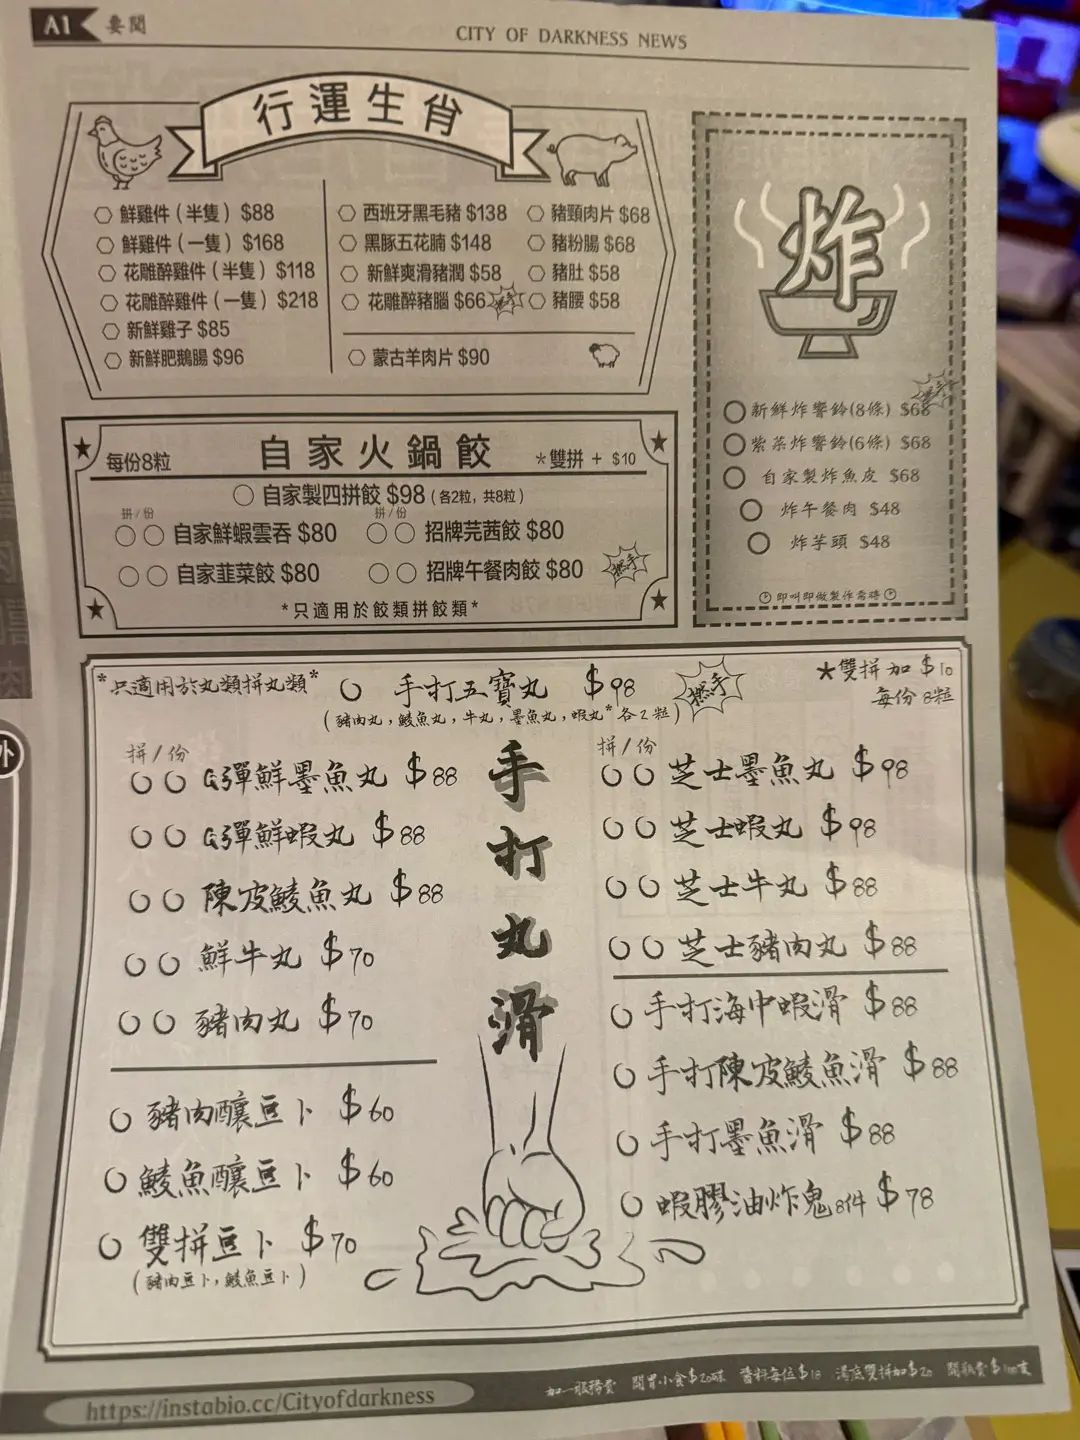 A1 要聞
CITY OF DARKNESS NEWS
行運生肖
鮮雞件（半隻）$88
鮮雞件（一隻）$168
花雕醉雞件（半隻）$118
花雕醉雞件（一隻）$218
新鮮雞子 $85
新鮮肥鵝腸 $96
西班牙黑毛豬 $138
黑豚五花腩 $148
新鮮爽滑豬潤 $58
花雕醉豬腦 $66 推手
豬頸肉片 $68
豬粉腸 $68
豬肚 $58
豬腰 $58
蒙古羊肉片 $90
炸
新鮮炸響鈴(8條) $68
紫菜炸響鈴(6條) $68
自家製炸魚皮 $68
炸午餐肉 $48
炸芋頭 $48
即叫即做製作需時
每份8粒 自家火鍋餃 *雙拼 + $10
自家製四拼餃 $98 (各2粒，共8粒)
拼/份 拼/份
自家鮮蝦雲吞 $80 招牌芫茜餃 $80
自家韮菜餃 $80 招牌午餐肉餃 $80
*只適用於餃類拼餃類*
*只適用於丸類拼丸類* 手打五寶丸 $98
(豬肉丸，鯪魚丸，牛丸，墨魚丸，蝦丸*各2粒)
★雙拼加$10
每份8粒
手打丸滑
拼/份
Q彈鮮墨魚丸 $88
Q彈鮮蝦丸 $88
陳皮鯪魚丸 $88
鮮牛丸 $70
豬肉丸 $70
豬肉釀豆卜 $60
鯪魚釀豆卜 $60
雙拼豆卜 $70
(豬肉豆卜，鯪魚豆卜)
拼/份
芝士墨魚丸 $98
芝士蝦丸 $98
芝士牛丸 $88
芝士豬肉丸 $88
手打海中蝦滑 $88
手打陳皮鯪魚滑 $88
手打墨魚滑 $88
蝦膠油炸鬼8件 $78
https://instabio.cc/Cityofdarkness
加一服務費 開胃小食$20/味 醬料每位$18 湯底雙拼加$20 開瓶費$100/支